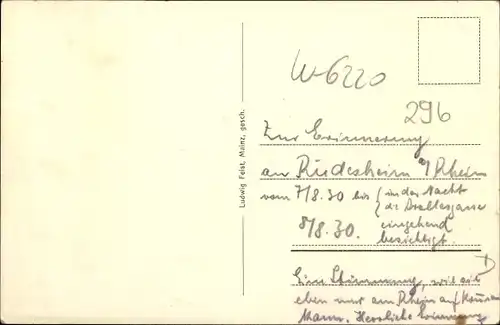 W-6220
296
Ludwig Feist, Mainz, gesch.
Zur Erinnerung
an Rüdesheim a/Rhein
vom 7/8.30 bis (in der Nacht
8/8.30. die Drosselgasse
eingehend
besichtigt.
Eine Stimmung, wie
eben nur am Rhein auf
kann. Herzliche Erinnerung